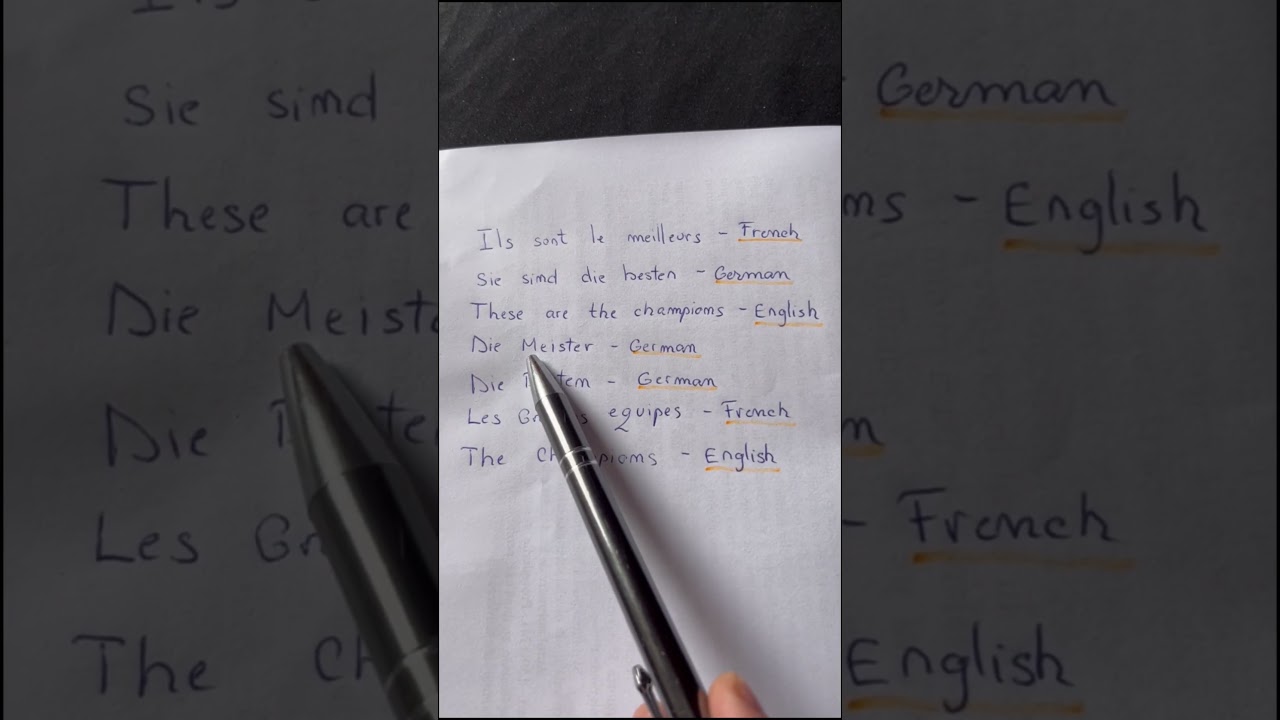 Ils sont le meilleurs - French
Sie simd die besten - German
These are the champions - English
Die Meister - German
Die - German
Les equipes - French
The - English